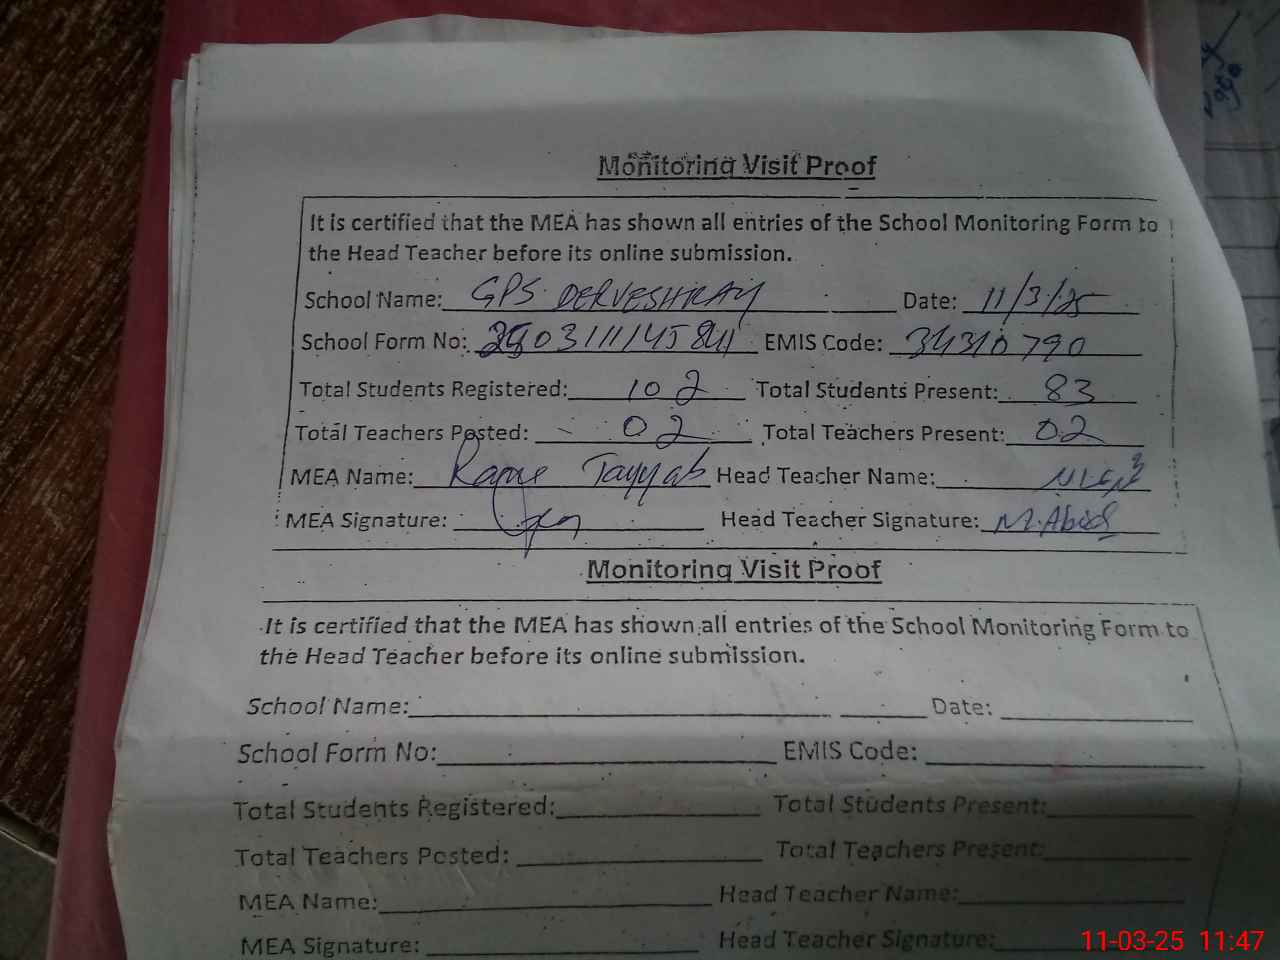 Monitoring Visit Proof
It is certified that the MEA has shown all entries of the School Monitoring Form to
the Head Teacher before its online submission.
School Name: GPS DERVESHKAY Date: 11/3/25
School Form No: EMIS Code: 34310790
Total Students Registered: 102 Total Students Present: 83
Total Teachers Posted: 02 Total Teachers Present: 02
MEA Name: Tayyab Head Teacher Name:
MEA Signature: Head Teacher Signature: M.Abid
Monitoring Visit Proof
It is certified that the MEA has shown all entries of the School Monitoring Form to
the Head Teacher before its online submission.
School Name: Date:
School Form No: EMIS Code:
Total Students Registered: Total Students Present:
Total Teachers Posted: Total Teachers Present:
MEA Name: Head Teacher Name:
MEA Signature: Head Teacher Signature:
11-03-25 11:47